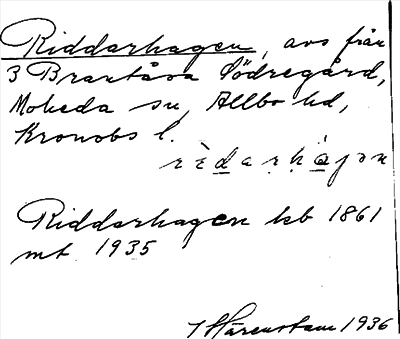 Riddarhagen, avs från
3 Brantåsa Södregård,
Moheda sn, Allbo hd,
Kronobs l.
rìdarhágən
Riddarhagen kb 1861
mt 1935
Härenstam 1936